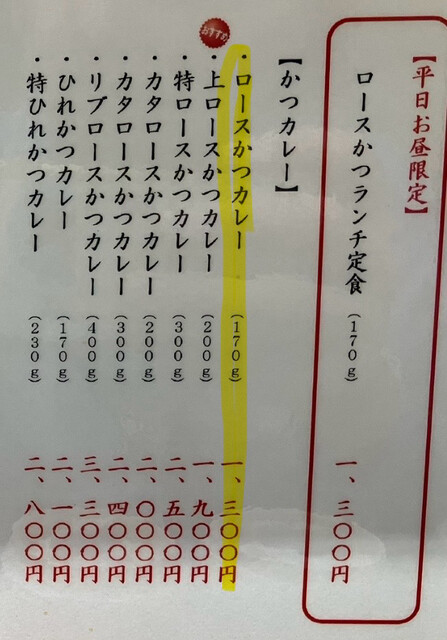 【平日お昼限定】
ロースかつランチ定食 (170g) 一、三〇〇円
【かつカレー】
・ロースかつカレー (170g) 一、三〇〇円
おすすめ
・上ロースかつカレー (200g) 一、九〇〇円
・特ロースかつカレー (300g) 二、五〇〇円
・カタロースかつカレー (200g) 二、〇〇〇円
・カタロースかつカレー (300g) 二、四〇〇円
・リブロースかつカレー (400g) 三、三〇〇円
・ひれかつカレー (170g) 二、一〇〇円
・特ひれかつカレー (230g) 二、八〇〇円